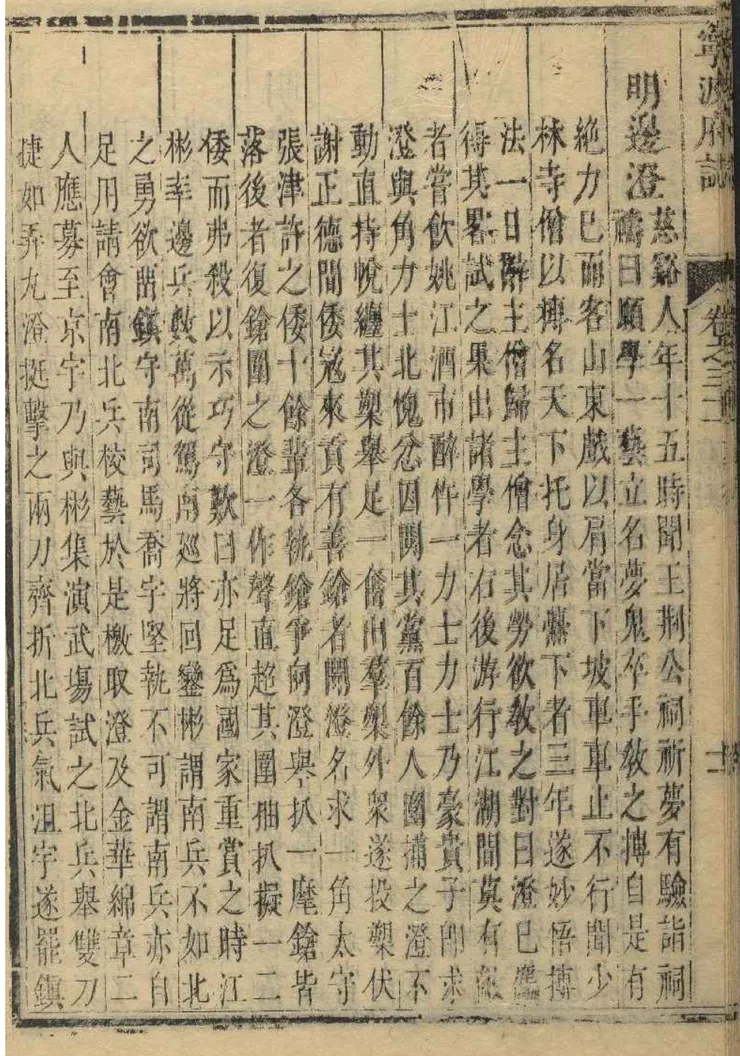 寧波府誌
卷之三
明邊澄慈谿人年十五時聞王荆公祠祈夢有驗詣祠
禱曰願學一藝立名夢鬼卒手敎之搏自是有
絶力巳而客山東戲以肩當下坡車車止不行聞少
林寺僧以搏名天下托身居爨下者三年遂妙悟搏
法一日辭主僧歸主僧念其勞欲敎之對曰澄巳
得其畧試之果出諸學者右後游行江湖間莫有
者嘗飲姚江酒市醉忤一力士力士乃豪貴子卽求
澄與角力士北愧忿因鬨其黨百餘人圍捕之澄不
動直持帨纏其槊舉足一奮出羣槊外衆遂投槊伏
謝正德間倭冦來貢有善鎗者聞澄名求一角太守
張津許之倭十餘輩各執鎗爭向澄舉扒一麾鎗皆
落後者復鎗圍之澄一作聲直超其圍抽扒擬一二
倭而弗殺以示巧守歎曰亦足爲國家重賞之時江
彬率邊兵數萬從駕南廵將回鑾彬謂南兵不如北
之勇欲畱鎮守南司馬喬宇堅執不可謂南兵亦自
足用請會南北兵校藝於是檄取澄及金華綿章二
人應募至京宇乃與彬集演武塲試之北兵舉雙刀
捷如弄丸澄挺擊之兩刀齊折北兵氣沮宇遂罷鎮